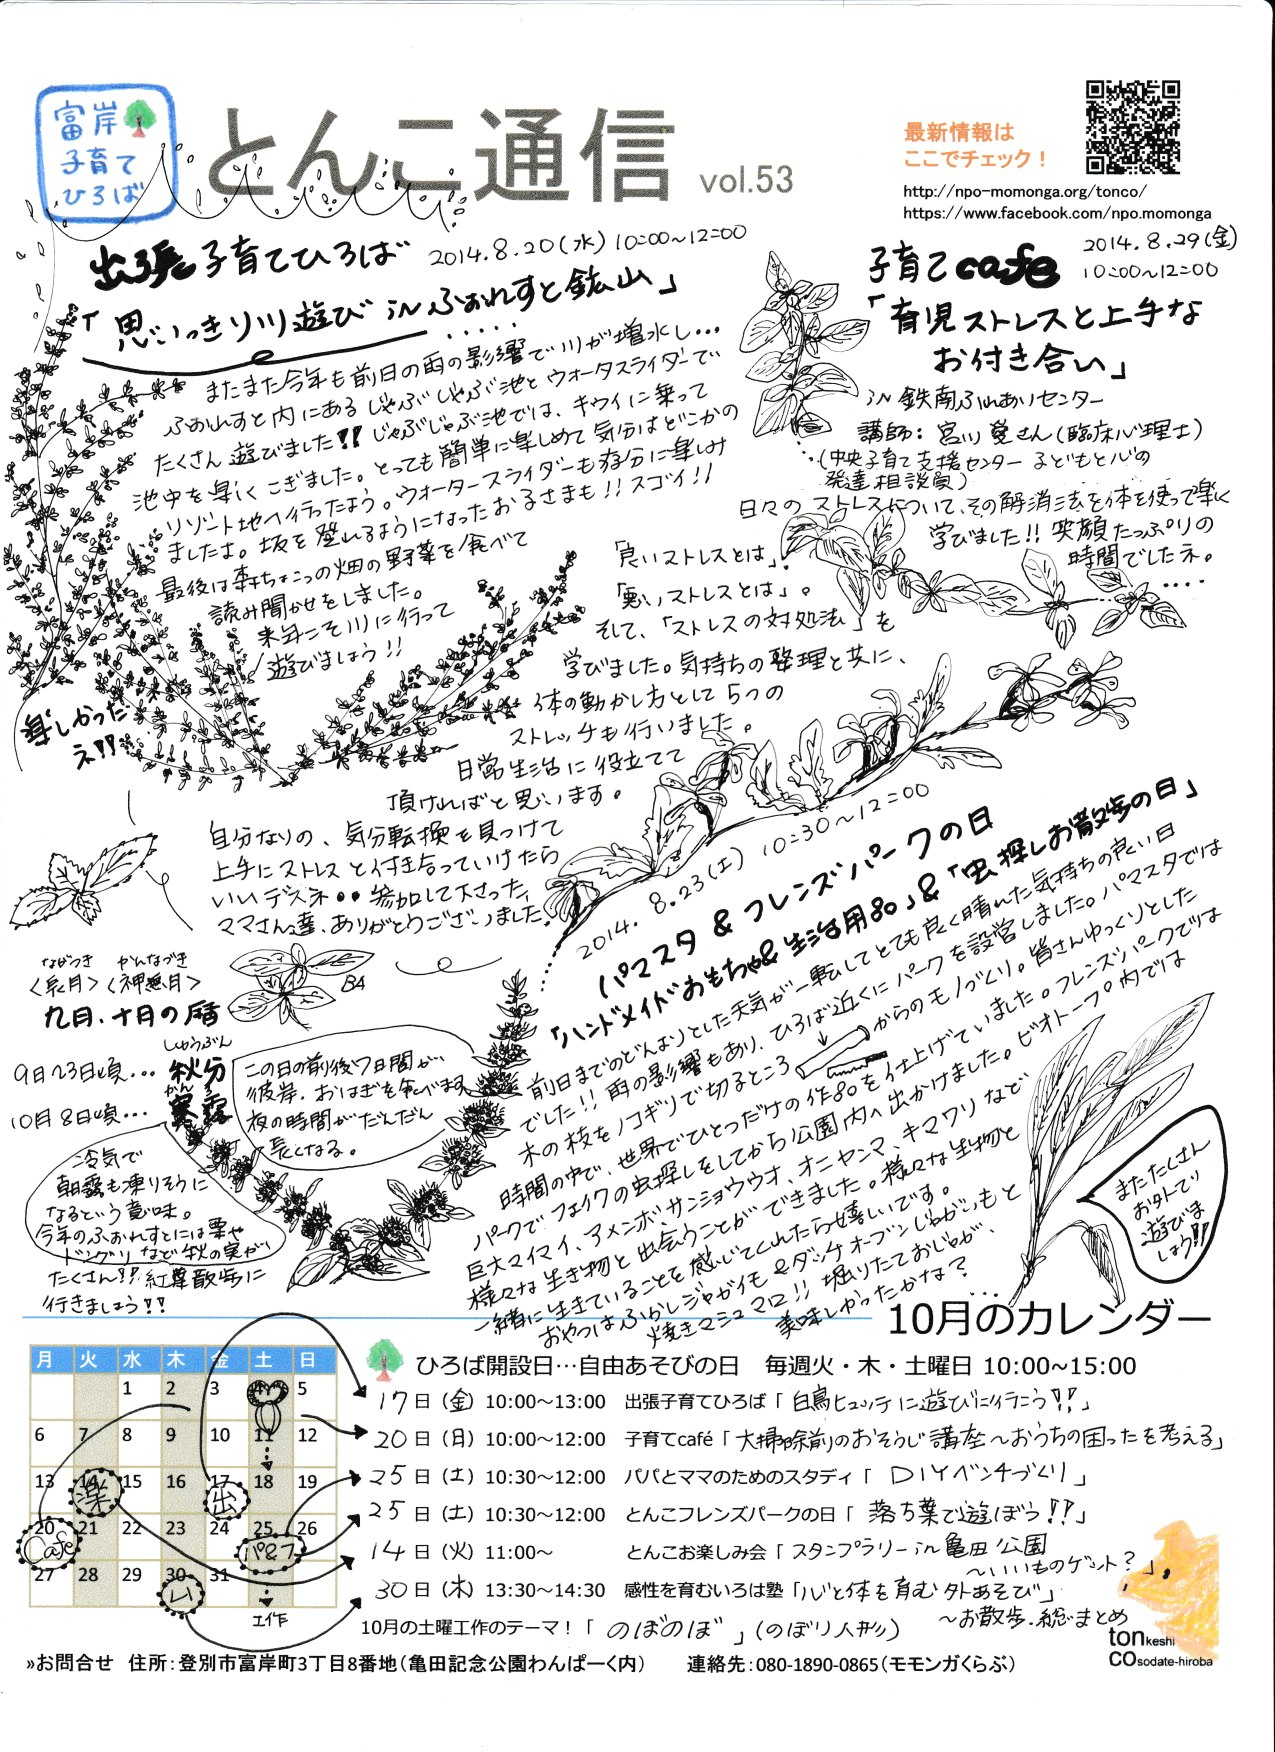 富岸
子育て
ひろば
とんこ通信 vol.53
最新情報は
ここでチェック！
http://npo-momonga.org/tonco/
https://www.facebook.com/npo.momonga
出張子育てひろば 2014.8.20(水) 10:00～12:00
「思いっきり川遊び inふぉれすと鉱山」
またまた今年も前日の雨の影響で川が増水し...
ふぉれすと内にあるじゃぶじゃぶ池とウォータスライダーで
たくさん遊びました!! じゃぶじゃぶ池では、キウイに乗って
池中を楽しくこぎました。とっても簡単に楽しめて気分はどこかの
リゾート地へ行ったよう。ウォータースライダーも存分に楽しみ
ましたよ。坂を登れるようになったお子さまも!! スゴイ!!
最後は森ちょこっの畑の野菜を食べて
読み聞かせをしました。
来年こそ川に行って
遊びましょう!!
楽しかった
ネ!!
子育てcafe 2014.8.29(金)
10:00～12:00
「育児ストレスと上手な
お付き合い」
in 鉄南ふれあいセンター
講師：宮川 愛さん(臨床心理士)
(中央子育て支援センター 子どもと心の
発達相談員)
日々のストレスについて、その解消法を体を使って楽しく
学びました!! 笑顔たっぷりの
時間でしたネ。
「良いストレスとは」、
「悪いストレスとは」。
そして、「ストレスの対処法」を
学びました。気持ちの整理と共に、
体の動かし方として5つの
ストレッチも行いました。
日常生活に役立てて
頂ければと思います。
自分なりの、気分転換を見つけて
上手にストレスと付き合っていけたら
いいデスネ●● 参加して下さった、
ママさん達、ありがとうございました!
2014.8.23(土) 10:30～12:00
パマスタ & フレンズパークの日
「ハンドメイドおもちゃ&生活用品」&「虫探しお散歩の日」
前日までのどんよりとした天気が一転してとても良く晴れた気持ちの良い日
でした!! 雨の影響もあり、ひろば近くにパークを設営しました。パマスタでは
木の枝をノコギリで切るところからのモノづくり。皆さんゆっくりとした
時間の中で、世界でひとつだけの作品を仕上げていました。フレンズパークでは
パークでフェイクの虫探しをしてから公園内へ出かけました。ビオトープ内では
巨大マイマイ、アメンボ、サンショウウオ、オニヤンマ、キマワリなど
様々な生き物と出会うことができました。様々な生物と
一緒に生きていることを感じてくれたら嬉しいです。
おやつはふかしジャガイモ&ダッチオーブンじゃがいもと
焼きマシュマロ!! 堀りたておじゃが、
美味しかったかな?
またたくさん
お外でり
遊びま
しょう!!
ながつき かんなづき
<長月> <神無月>
九月、十月の暦
B4
しゅうぶん
9日23日頃... 秋分
かん
10月8日頃... 寒露
この日の前後7日間が
彼岸、おはぎを食べます
夜の時間がだんだん
長くなる。
冷気で
朝露も凍りそうに
なるという意味。
今年のふぉれすとには栗や
ドングリなど秋の実が
たくさん!! 紅葉散歩に
行きましょう!!
10月のカレンダー
月 火 水 木 金 土 日
1 2 3 4 5
6 7 8 9 10 11 12
13 14 15 16 17 18 19
20 21 22 23 24 25 26
27 28 29 30 31
楽
出
Cafe
パ&フ
い
工作
ひろば開設日…自由あそびの日 毎週火・木・土曜日 10:00～15:00
17日（金）10:00～13:00 出張子育てひろば「白鳥ヒュッテに遊びに行こう!!」
20日（月）10:00～12:00 子育てcafé「大掃除前のおそうじ講座～おうちの困ったを考える」
25日（土）10:30～12:00 パパとママのためのスタディ「DIYベンチづくり」
25日（土）10:30～12:00 とんこフレンズパークの日「落ち葉で遊ぼう!!」
14日（火）11:00～ とんこお楽しみ会「スタンプラリー in 亀田公園
～いいものゲット?」
30日（木）13:30～14:30 感性を育むいろは塾「心と体を育む外あそび」
～お散歩.総まとめ
10月の土曜工作のテーマ！「のぼのぼ」(のぼり人形)
tonkeshi
cosodate-hiroba
»お問合せ 住所：登別市富岸町3丁目8番地（亀田記念公園わんぱーく内） 連絡先：080-1890-0865（モモンガくらぶ）